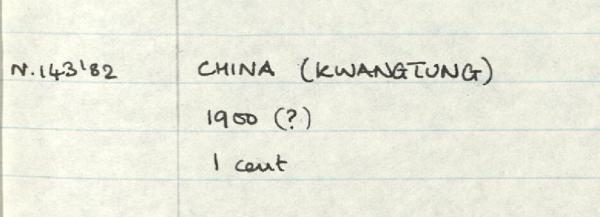 N.143'82 CHINA (KWANGTUNG)
1900 (?)
1 cent